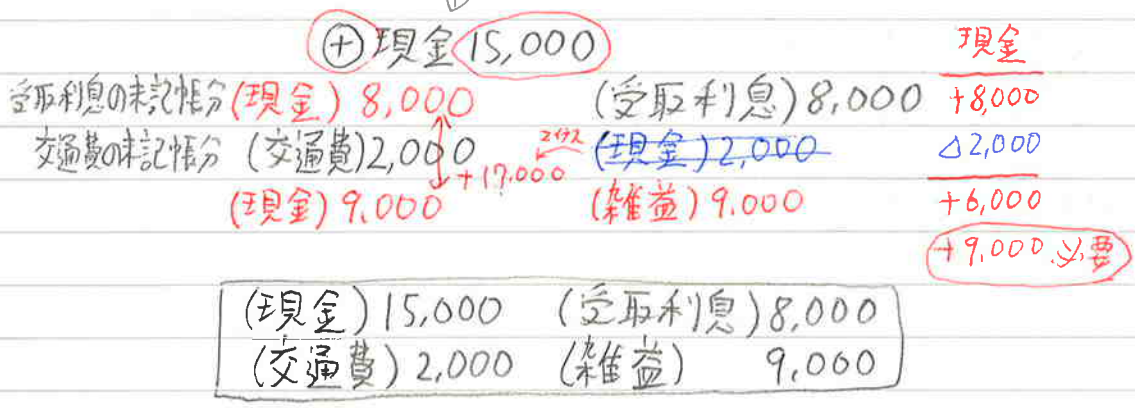 ⊕現金 15,000 現金
受取利息の未記帳分 (現金) 8,000 (受取利息) 8,000 +8,000
交通費の未記帳分 (交通費) 2,000 マイナス (現金) 2,000 △2,000
+17.000
(現金) 9.000 (雑益) 9.000 +6,000
+9,000 必要
(現金) 15,000 (受取利息) 8,000
(交通費) 2,000 (雑益) 9,000